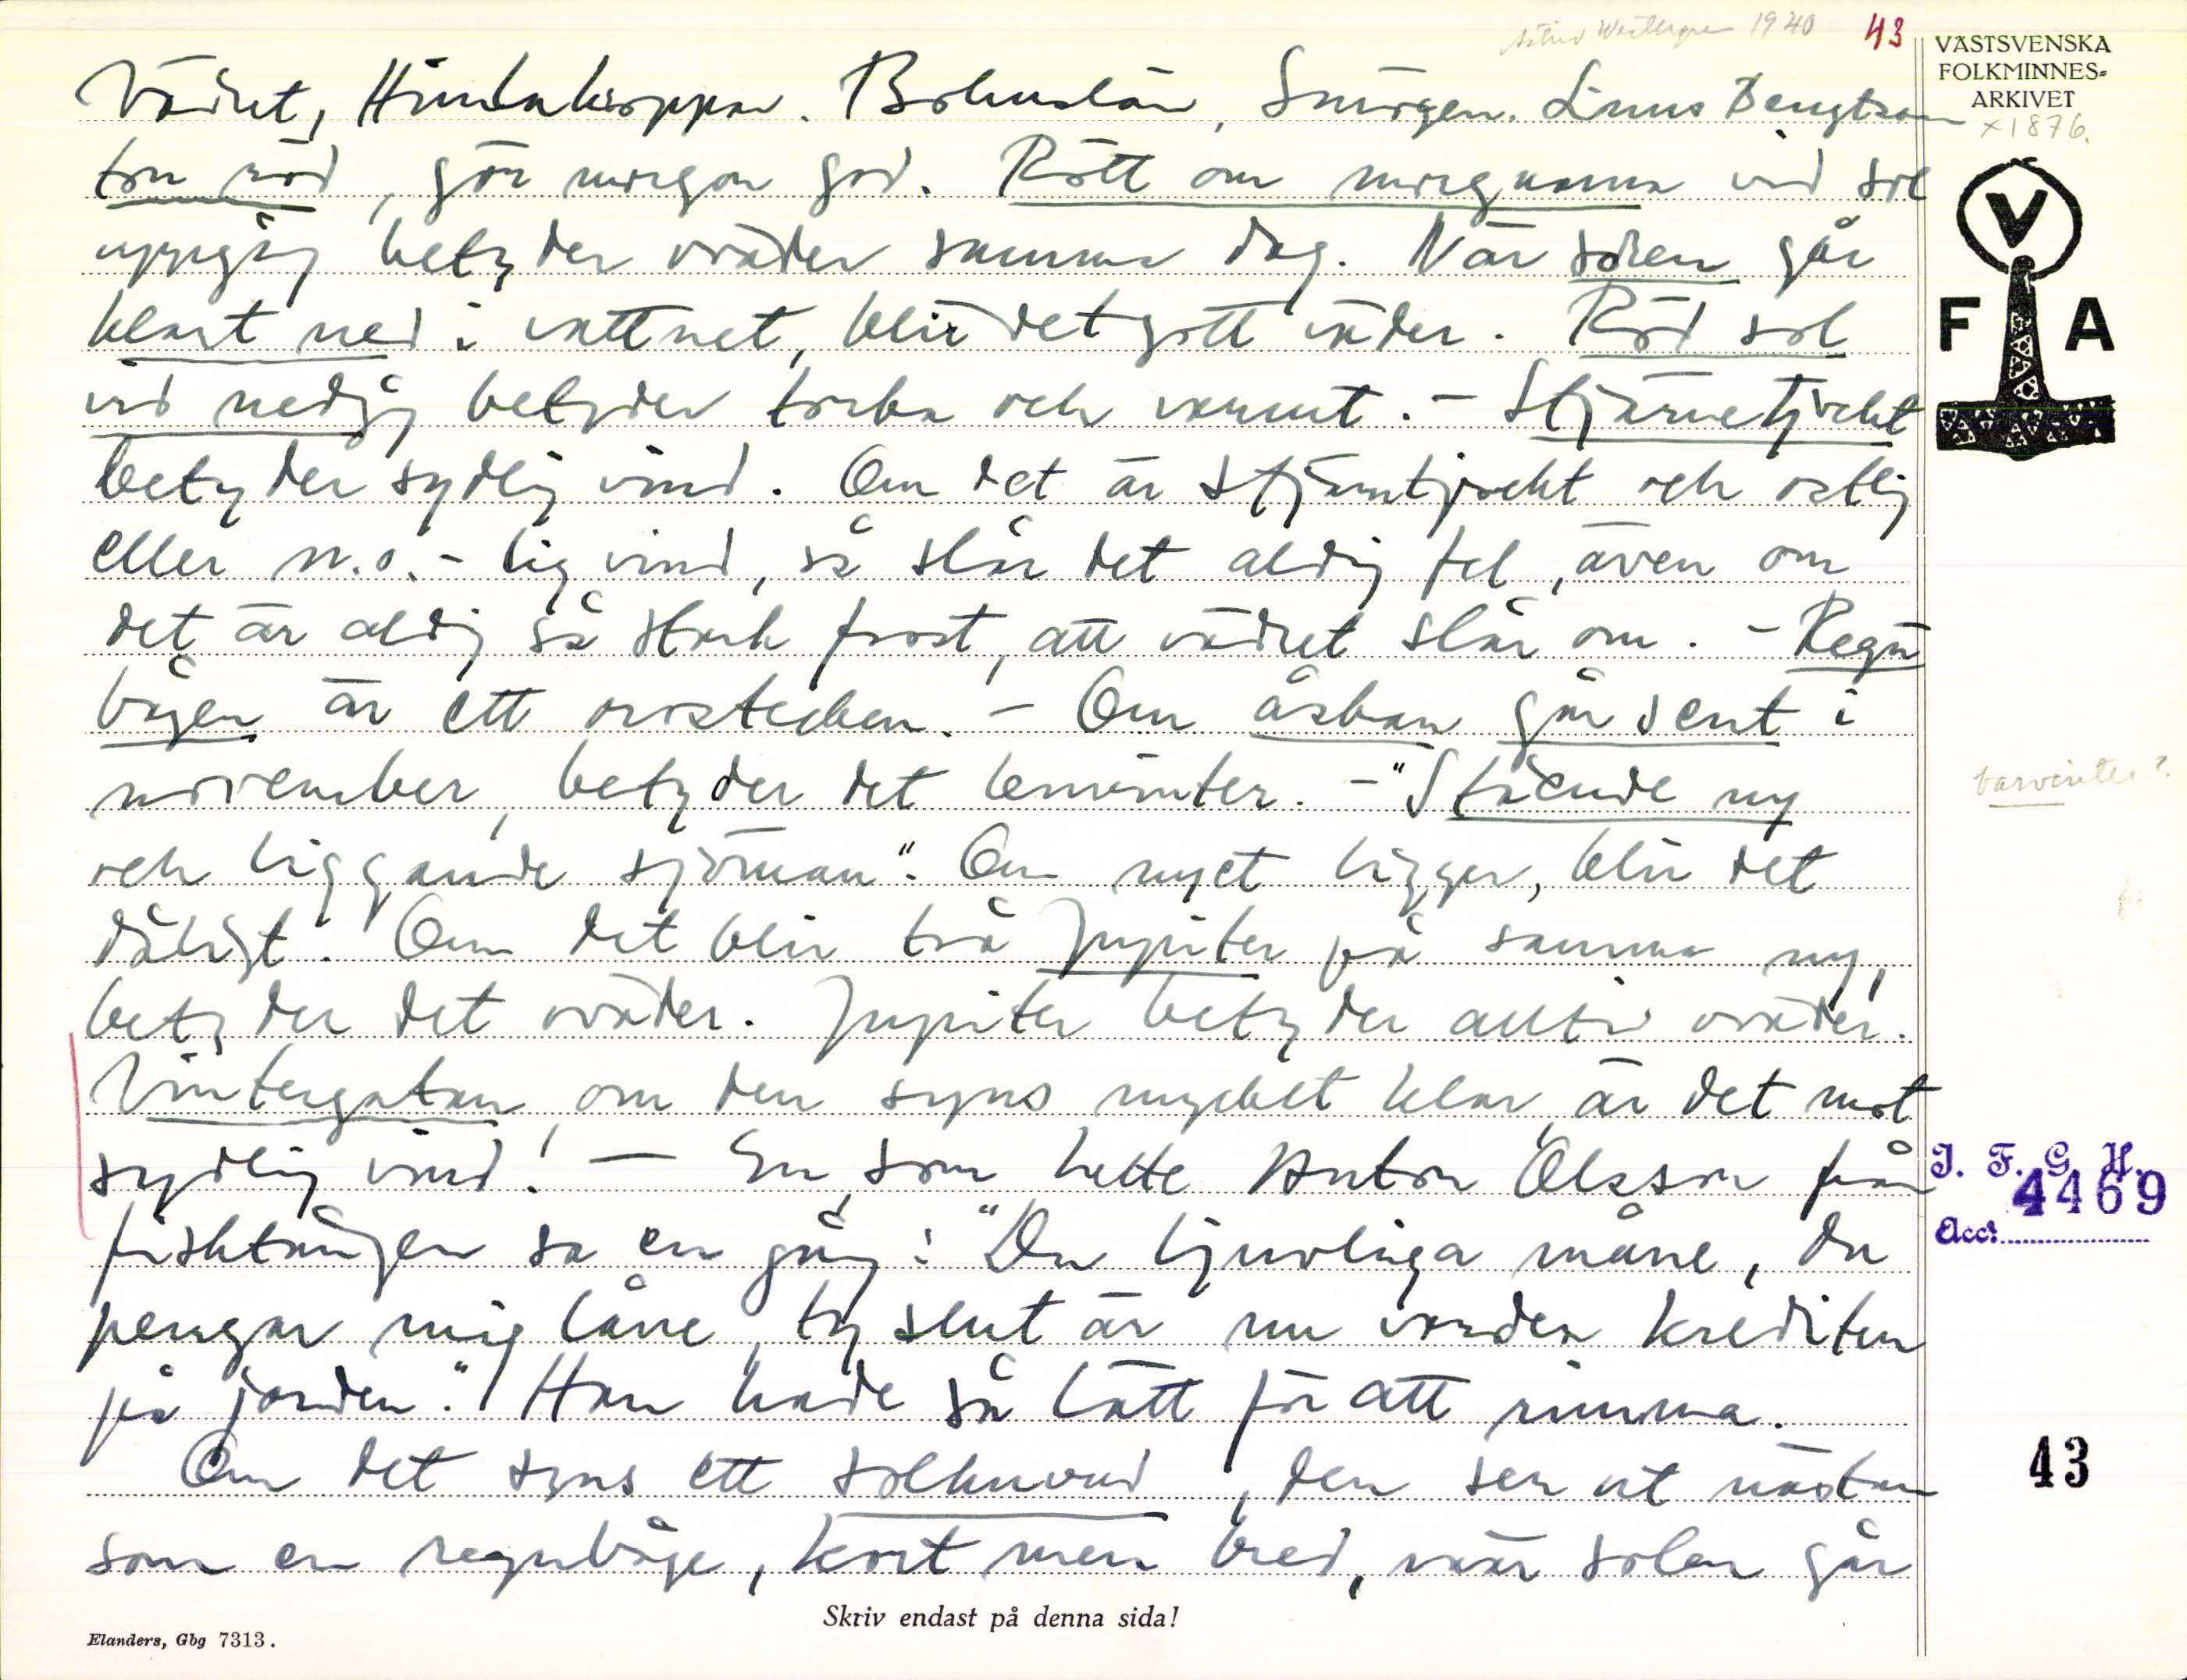 1940 43
VÄSTSVENSKA
FOLKMINNES-
ARKIVET
x 1876.
Vädret, Bohuslän, Smögen. Linus Bengtson
ton röd, gör morgon god. Rött om morgnarna vid sol
uppgång betyder oväder samma dag. När solen går
klart ned i vattnet, blir det gott väder. Röd sol
vid nedgång betyder torka och varmt. - Stjärnetjockt
betyder sydlig vind. Om det är stjärntjockt och ostlig
eller n.o.-lig vind, så slår det aldrig fel, även om
det är aldrig så stark frost, att vädret slår om. - Regn
bågen är ett ovistecken. - Om åskan går sent i
november, betyder det . - "Stående ny
och liggande sjöman". Om nyet ligger, blir det
dåligt. Om det blir två Jupiter på samma ny,
betyder det oväder. Jupiter betyder alltid oväder.
Vintergatan, om den syns mycket klar, är det mot
sydlig vind! - En, som hette Anton Olsson från
Fisktången sa en gång: "Du ljuvliga måne, du
pengar mig låne, ty slut är nu vorden krediten
på jorden." Han hade så lätt för att rimma.
Om det syns ett solhuvud, den ser ut nästan
som en regnbåge, kort men bred, när solen går
V
F A
barvinter?
I. F. G. H.
4469
Acc:
43
Skriv endast på denna sida!
Elanders, Gbg 7313.